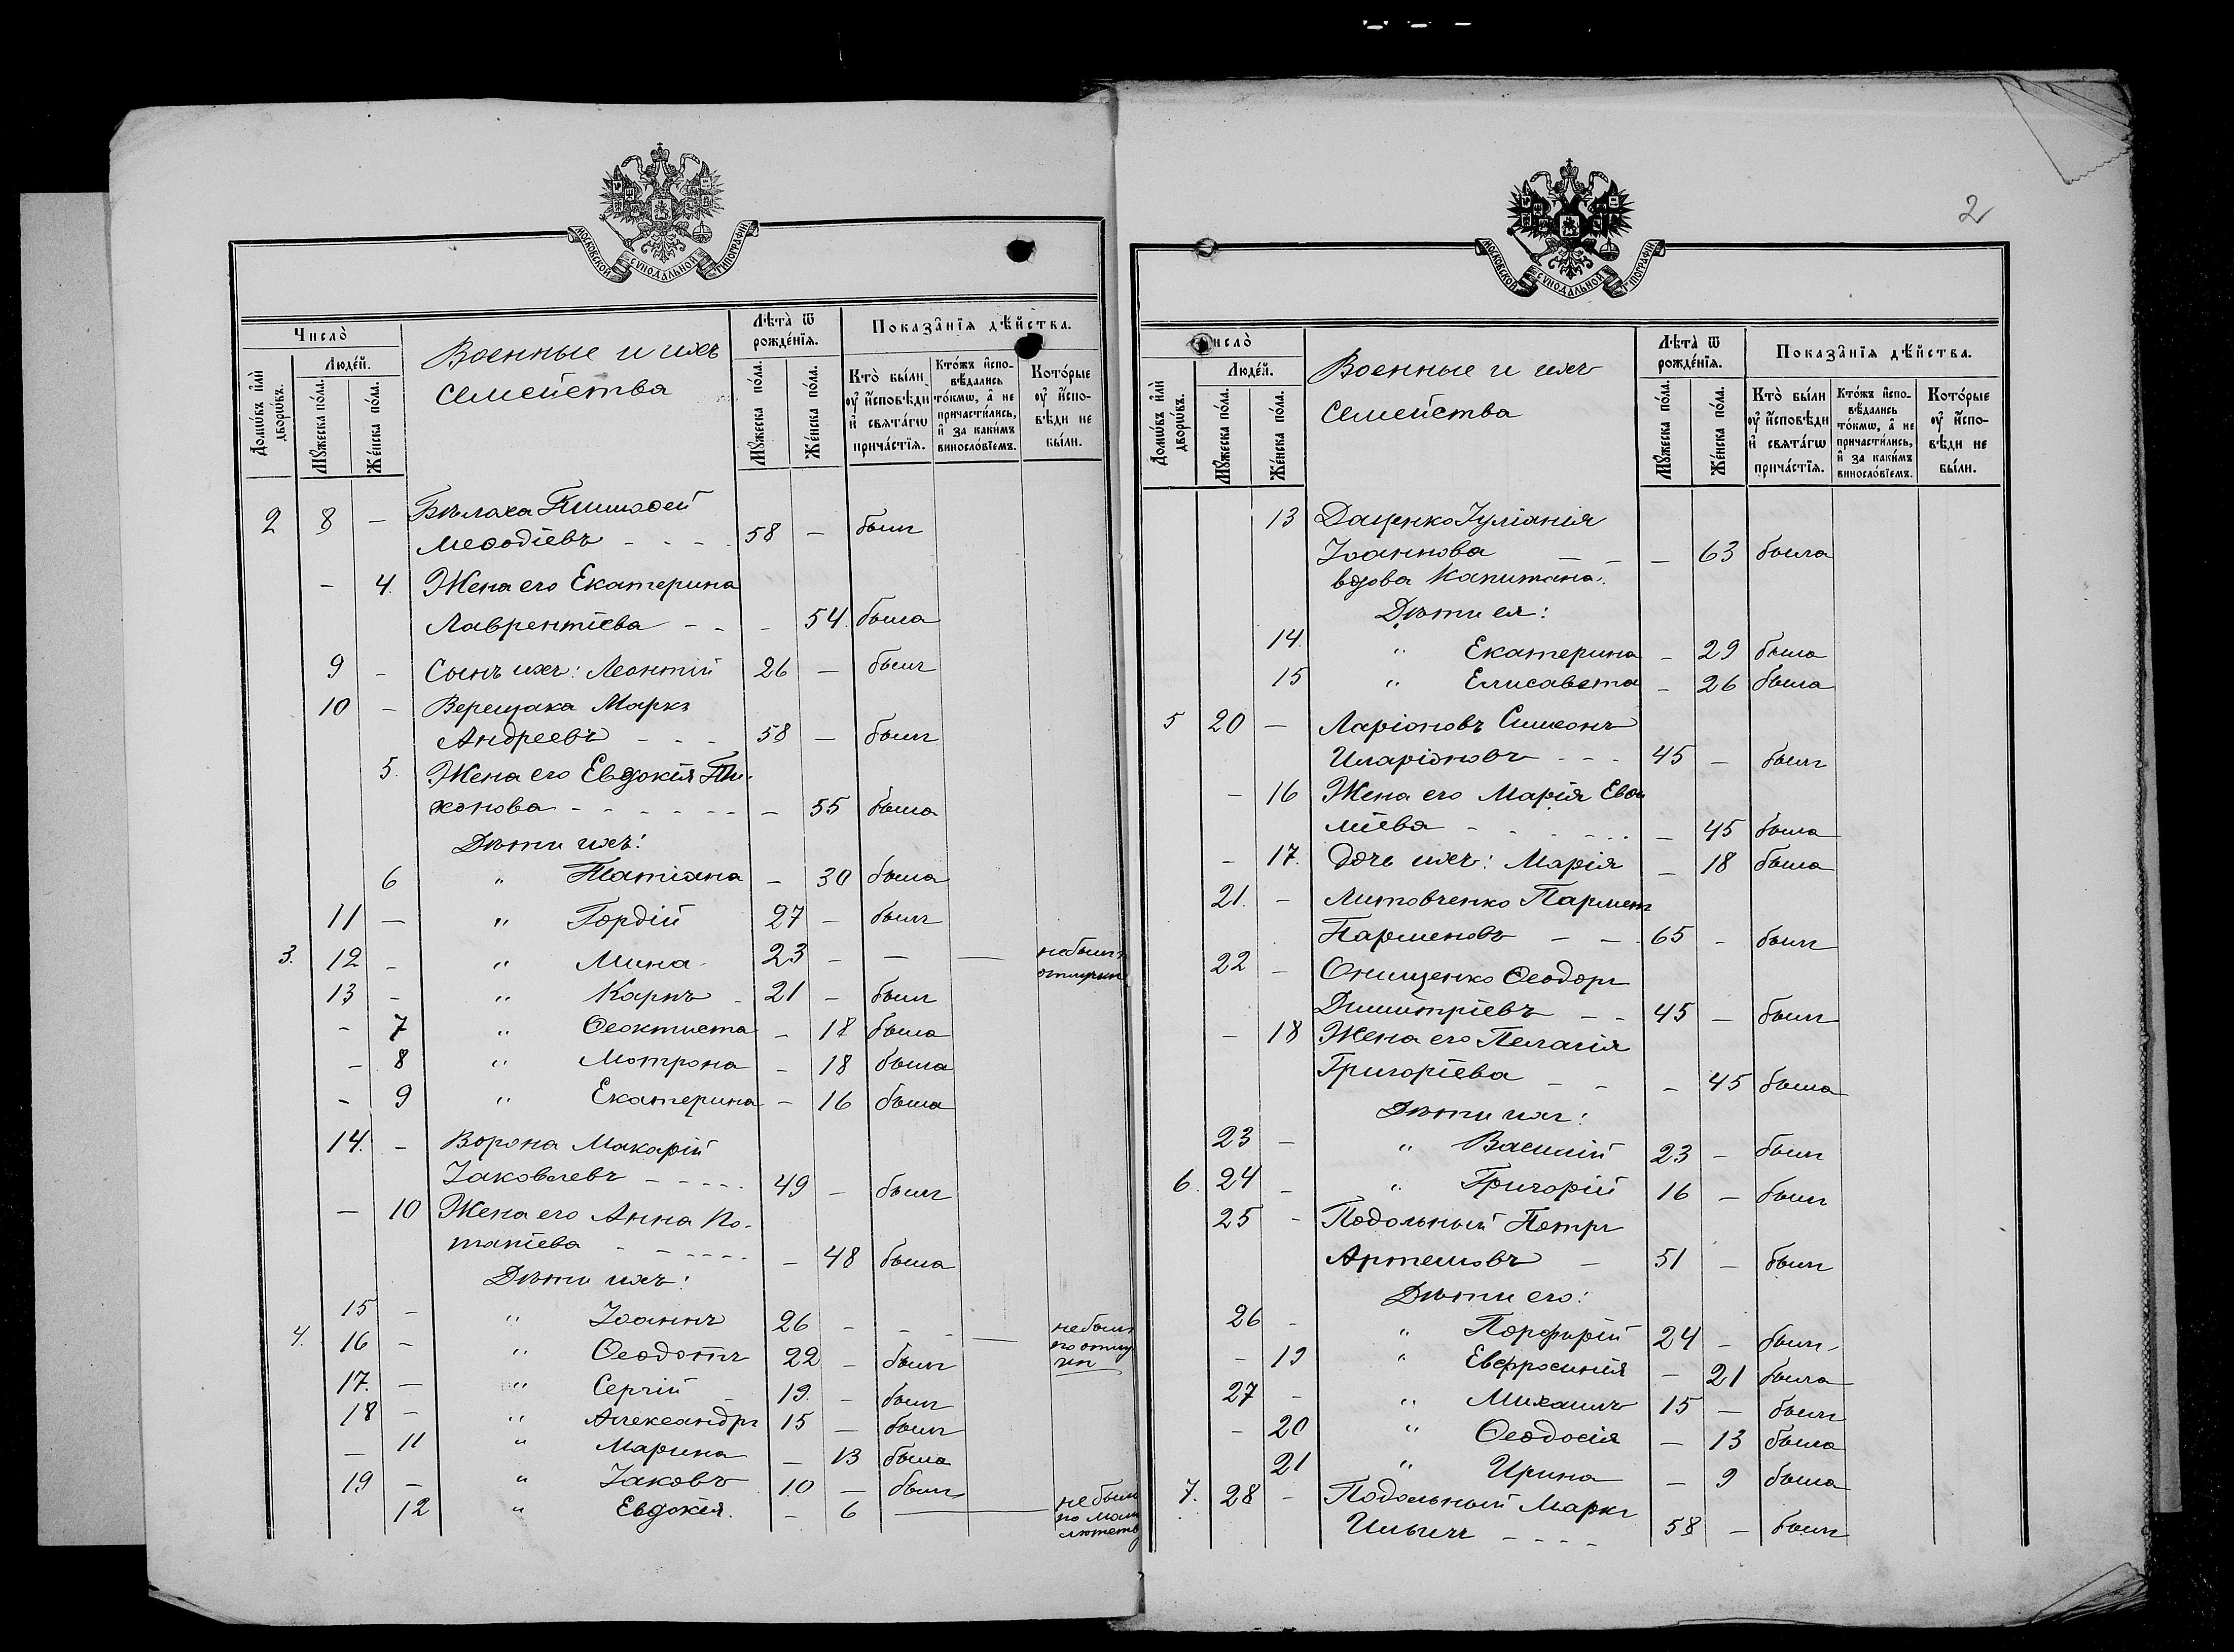 МОСКОВСКОЙ СУНОДАЛЬНОЙ ТИПОГРАФІИ
Число̀
Людє́й.
Домѡ́въ и҆лѝ дворѡ́въ.
Мꙋ́жеска по́ла.
Же́нска по́ла.
Военные и ихъ
семейства
Лѣта̀ ѿ рожде́нїѧ.
Мꙋ́жеска по́ла.
Же́нска по́ла.
Показа̑нїѧ дѣ́йства.
Кто̀ бы́ли ᲂу҆ и҆́сповѣди и҆ свѧта́гѡ прича́стїѧ.
Кто́жъ и҆спо­вѣ́дались то́кмѡ, а҆ не причасти́лись, и҆ за каки́мъ виносло́вїемъ.
Кото́рые ᲂу҆ и҆́спо­вѣди не бы́ли.
2 8 – Бѣлаха Тимофей
Меѳодіевъ - - - 58 – былъ
– 4. Жена его Екатерина
Лаврентіева - - - 54. была
9 - Сынъ ихъ: Леонтій 26 – былъ
10 – Верещака Маркъ
Андреевъ - - - 58 – былъ
5. Жена его Евдокія Ти-
хонова - - - - - – 55 была
Дѣти ихъ:
6 " Татіана – 30 была
11 – " Гордій 27 – былъ
3. 12 - " Мина 23 – — — не былъ
отлучкѣ
13 - " Карпъ - 21 – былъ
- 7 " Ѳеоктиста – 18 была
– 8 " Мотрона – 18 была
- 9 " Екатерина – 16 была
14. - Ворона Макарій
Іаковлевъ - - - - 49 – былъ
— 10 Жена его Анна По-
тапіева - - - - – 48 была
Дѣти ихъ:
15 – " Іоаннъ 26 – - - — не былъ
по отлу
чкѣ
4. 16 – " Ѳеодотъ 22 – былъ
17. — " Сергій - 19. – былъ
18 – " Александръ 15 – былъ
– 11 " Марина – 13 была
19 – " Іаковъ 10 – былъ
12 " Евдокія. – 6 — — не была
по мало
лѣтству
2
МОСКОВСКОЙ СУНОДАЛЬНОЙ ТИПОГРАФІИ
Число̀
Людє́й.
Домѡ́въ и҆лѝ дворѡ́въ.
Мꙋ́жеска по́ла.
Же́нска по́ла.
Военные и ихъ
семейства
Лѣта̀ ѿ рожде́нїѧ.
Мꙋ́жеска по́ла.
Же́нска по́ла.
Показа̑нїѧ дѣ́йства.
Кто̀ бы́ли ᲂу҆ и҆́сповѣди и҆ свѧта́гѡ прича́стїѧ.
Кто́жъ и҆спо­вѣ́дались то́кмѡ, а҆ не причасти́лись, и҆ за каки́мъ виносло́вїемъ.
Кото́рые ᲂу҆ и҆́спо­вѣди не бы́ли.
13 Даценко Іуліанія
Іоаннова – – 63 была
вдова Капитана.
Дѣти ея:
14. " Екатерина – 29 была
15 " Елисавета – 26 была
5 20 – Ларіоновъ Симеонъ
Иларіоновъ - - - 45 – былъ
– 16 Жена его Марія Евѳи
міева - - - - – 45 была
– 17. Дочь ихъ: Марія – 18 была
21. - Литовченко Парменъ
Парменовъ – – 65 - былъ
22 – Онищенко Ѳеодоръ
Димитріевъ – - 45 – былъ
– 18 Жена его Пелагія
Григоріева – - – 45 была
Дѣти ихъ:
23 – " Василій 23 – былъ
6. 24 – " Григорій 16 – былъ
25 - Подольный Петръ
Артемовъ – 51 – былъ
Дѣти его:
26 - " Порфирій 24 – былъ
– 19 " Евфросинія – 21 была
27 - " Михаилъ 15 – былъ
– 20 " Ѳеодосія – 13 была
21 " Ирина – 9 была
7. 28 - Подольный Маркъ
Ильичъ - - - - 58 – былъ